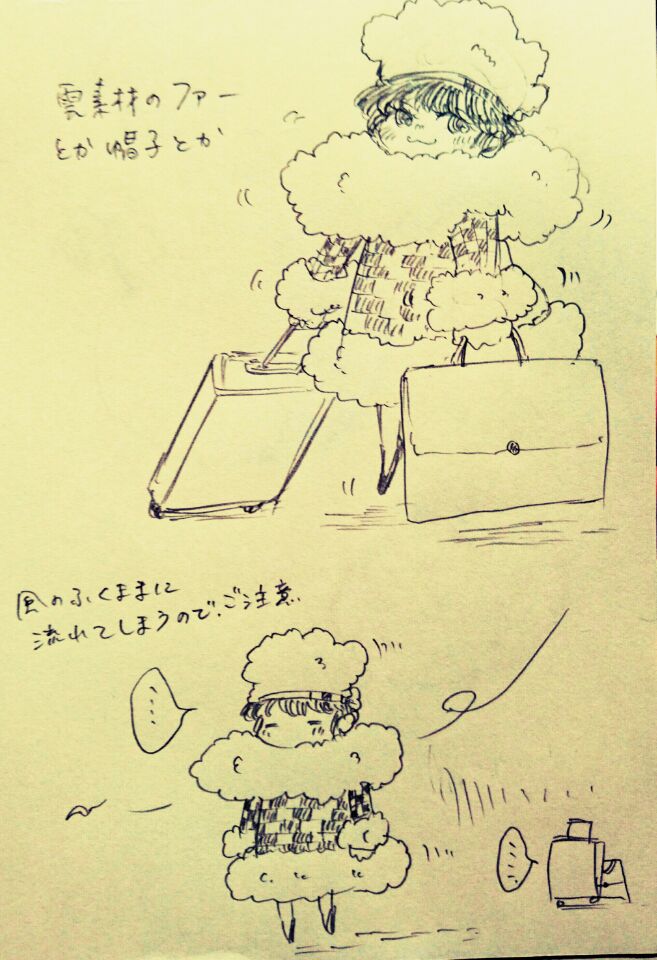 雲素材のファー
とか帽子とか
風のふくままに
流れてしまうので、ご注意
……
……